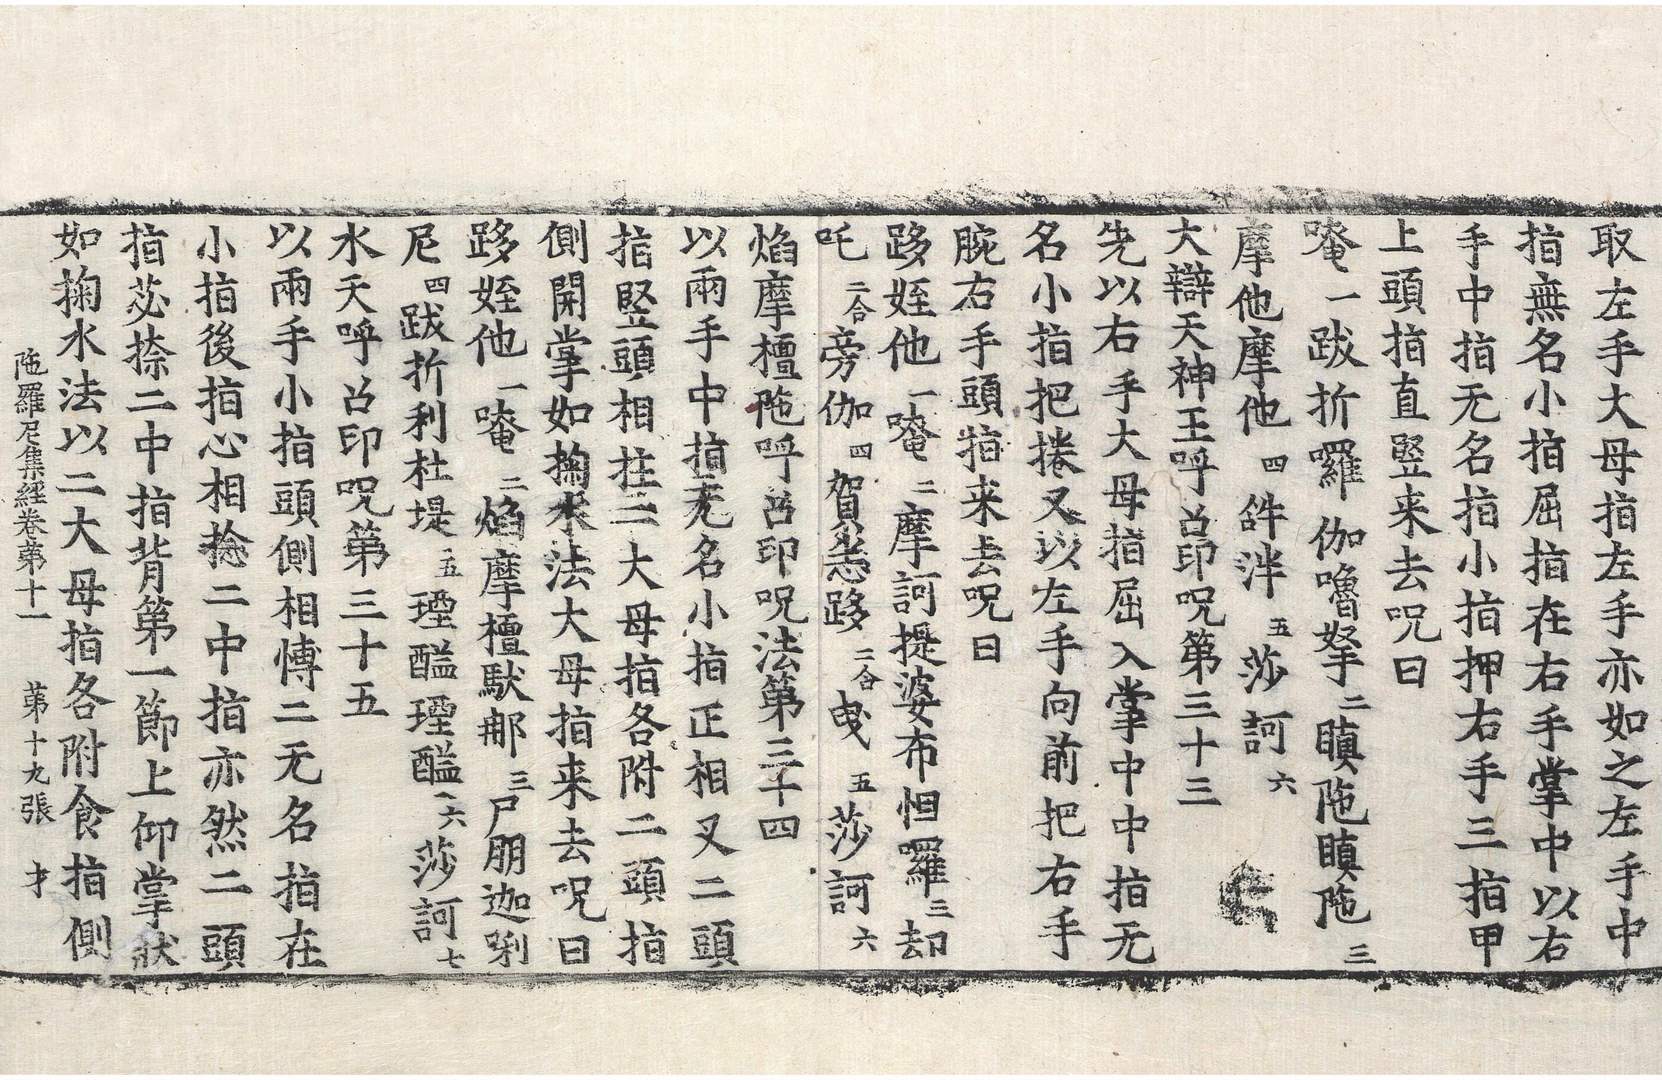 取左手大母指左手亦如之左手中
指無名小指屈指在右手掌中以右
手中指无名指小指押右手三指甲
上頭指直竪来去呪曰
唵一跋折囉伽嚕拏二瞋陁瞋陁三
摩他摩他四𤙖泮五莎訶六
大辯天神王呼召印呪第三十三
先以右手大母指屈入掌中中指无
名小指把捲又以左手向前把右手
腕右手頭指来去呪曰
跢姪他一唵二摩訶提婆布怛羅三却
吒二合旁伽四賀悉跢二合曳五莎訶六
焰摩檀陁呼召印呪法第三十四
以兩手中指无名小指正相叉二頭
指竪頭相拄二大母指各附二頭指
側開掌如掬水法大母指来去呪曰
跢姪他一唵二焰摩檀馱郁三尸朋迦唎
尼四跋折利杜堤五堙醯堙醯六莎訶七
水天呼召印呪第三十五
以兩手小指頭側相愽二无名指在
小指後指心相捻二中指亦然二頭
指苾捺二中指背第一節上仰掌狀
如掬水法以二大母指各附食指側
陁羅尼集經卷第十一 第十九張 才